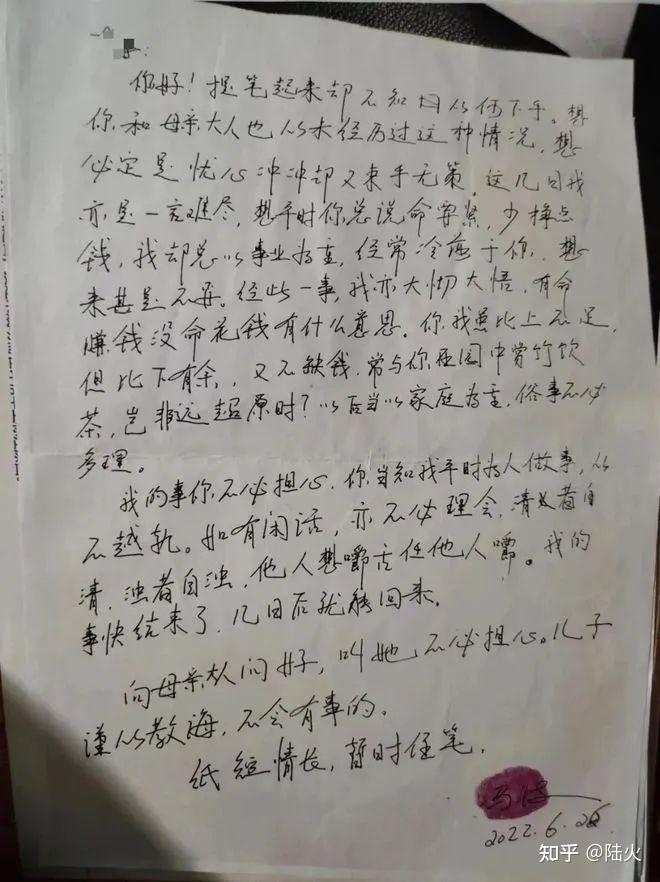 你好！提笔起来却不知因从何下手。想
你和母亲大人也从未经历过这种情况，想
必定是忧心冲冲却又束手无策。这几日我
亦是一言难尽，想平时你总说命要紧，少挣点
钱，我却总以事业为重，经常冷落于你，想
来甚是不妥。经此一事，我亦大切大悟，有命
赚钱没命花钱有什么意思。你我虽比上不足，
但比下有余，又不缺钱，常与你在园中赏竹饮
茶，岂非远超原时？以后当以家庭为重，俗事不必
多理。
我的事你不必担心，你当知我平时为人做事，从
不越轨。如有闲话，亦不必理会，清者自
清，浊者自浊，他人想嚼舌任他人嚼。我的
事快结束了，几日后就能回来。
向母亲大人问好，叫她不必担心。儿子
谨从教诲，不会有事的。
纸短情长，暂时住笔。
2022.6.26
知乎 @陆火